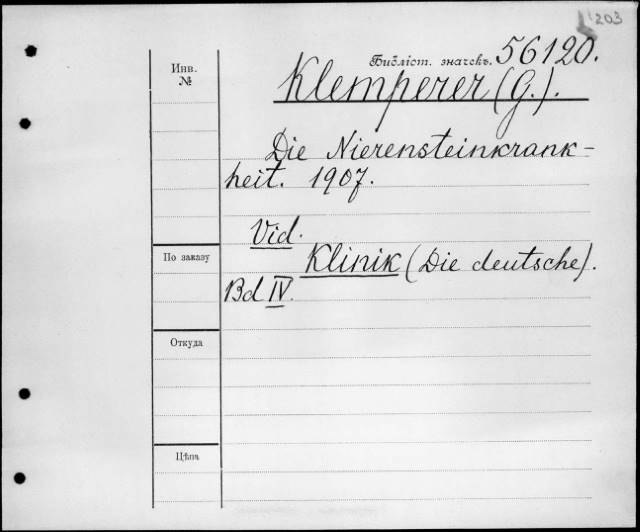 203
Инв.
№
Бібліот. значекъ. 56120.
Klemperer (G.).
Die Nierensteinkrank-
heit. 1907.
Vid.
Klinik (Die deutsche).
Bd IV.
По заказу
Откуда
Цѣна